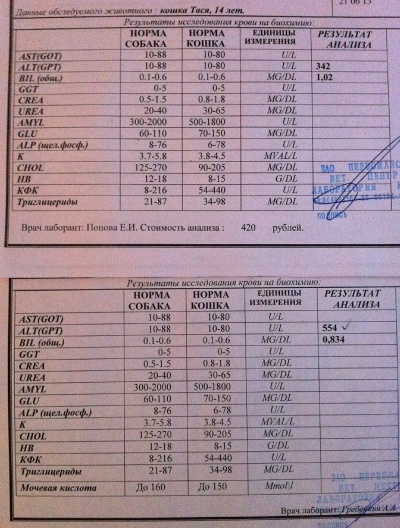 21 06 13
Данные обследуемого животного : кошка Тася, 14 лет.
Результаты исследования крови на биохимию
НОРМА СОБАКА НОРМА КОШКА ЕДИНИЦЫ ИЗМЕРЕНИЯ РЕЗУЛЬТАТ АНАЛИЗА
AST(GOT) 10-88 10-80 U/L
ALT(GPT) 10-88 10-80 U/L 342
BIL (общ.) 0.1-0.6 0.1-0.6 MG/DL 1,02
GGT 0-5 0-5 U/L
CREA 0.5-1.5 0.8-1.8 MG/DL
UREA 20-40 30-65 MG/DL
AMYL 300-2000 500-1800 U/L
GLU 60-110 70-150 MG/DL
ALP (щел.фосф.) 8-76 6-78 U/L
K 3.7-5.8 3.8-4.5 MVAL/L
CHOL 125-270 90-205 MG/DL
HB 12-18 8-15 G/DL
КФК 8-216 54-440 U/L
Триглицериды 21-87 34-98 MG/DL
ЗАО ПЕРВОМАЙС
ВЕТ ЦЕНТР
ЛАБОРАТОРИЯ
ПОДПИСЬ
Врач лаборант: Попова Е.И. Стоимость анализа : 420 рублей.
Результаты исследования крови на биохимию:
НОРМА СОБАКА НОРМА КОШКА ЕДИНИЦЫ ИЗМЕРЕНИЯ РЕЗУЛЬТАТ АНАЛИЗА
AST(GOT) 10-88 10-80 U/L
ALT(GPT) 10-88 10-80 U/L 554 ✓
BIL (общ.) 0.1-0.6 0.1-0.6 MG/DL 0,834
GGT 0-5 0-5 U/L
CREA 0.5-1.5 0.8-1.8 MG/DL
UREA 20-40 30-65 MG/DL
AMYL 300-2000 500-1800 U/L
GLU 60-110 70-150 MG/DL
ALP (щел.фосф.) 8-76 6-78 U/L
K 3.7-5.8 3.8-4.5 MVAL/L
CHOL 125-270 90-205 MG/DL
HB 12-18 8-15 G/DL
КФК 8-216 54-440 U/L
Триглицериды 21-87 34-98 MG/DL
Мочевая кислота До 160 До 150 Mmol\l
ЗАО
ВЕТ
Врач лаборант: Гребенкин А.А